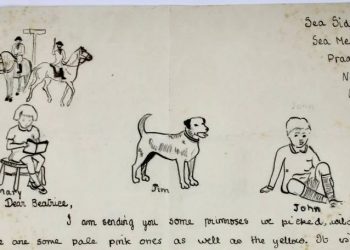 Sea Sid
Sea Me
Praa
N
John
Mary
Dear Beatrice,
Jim
John
I am sending you some primroses we picked,
e are some pale pink ones as well as the yellow. It w